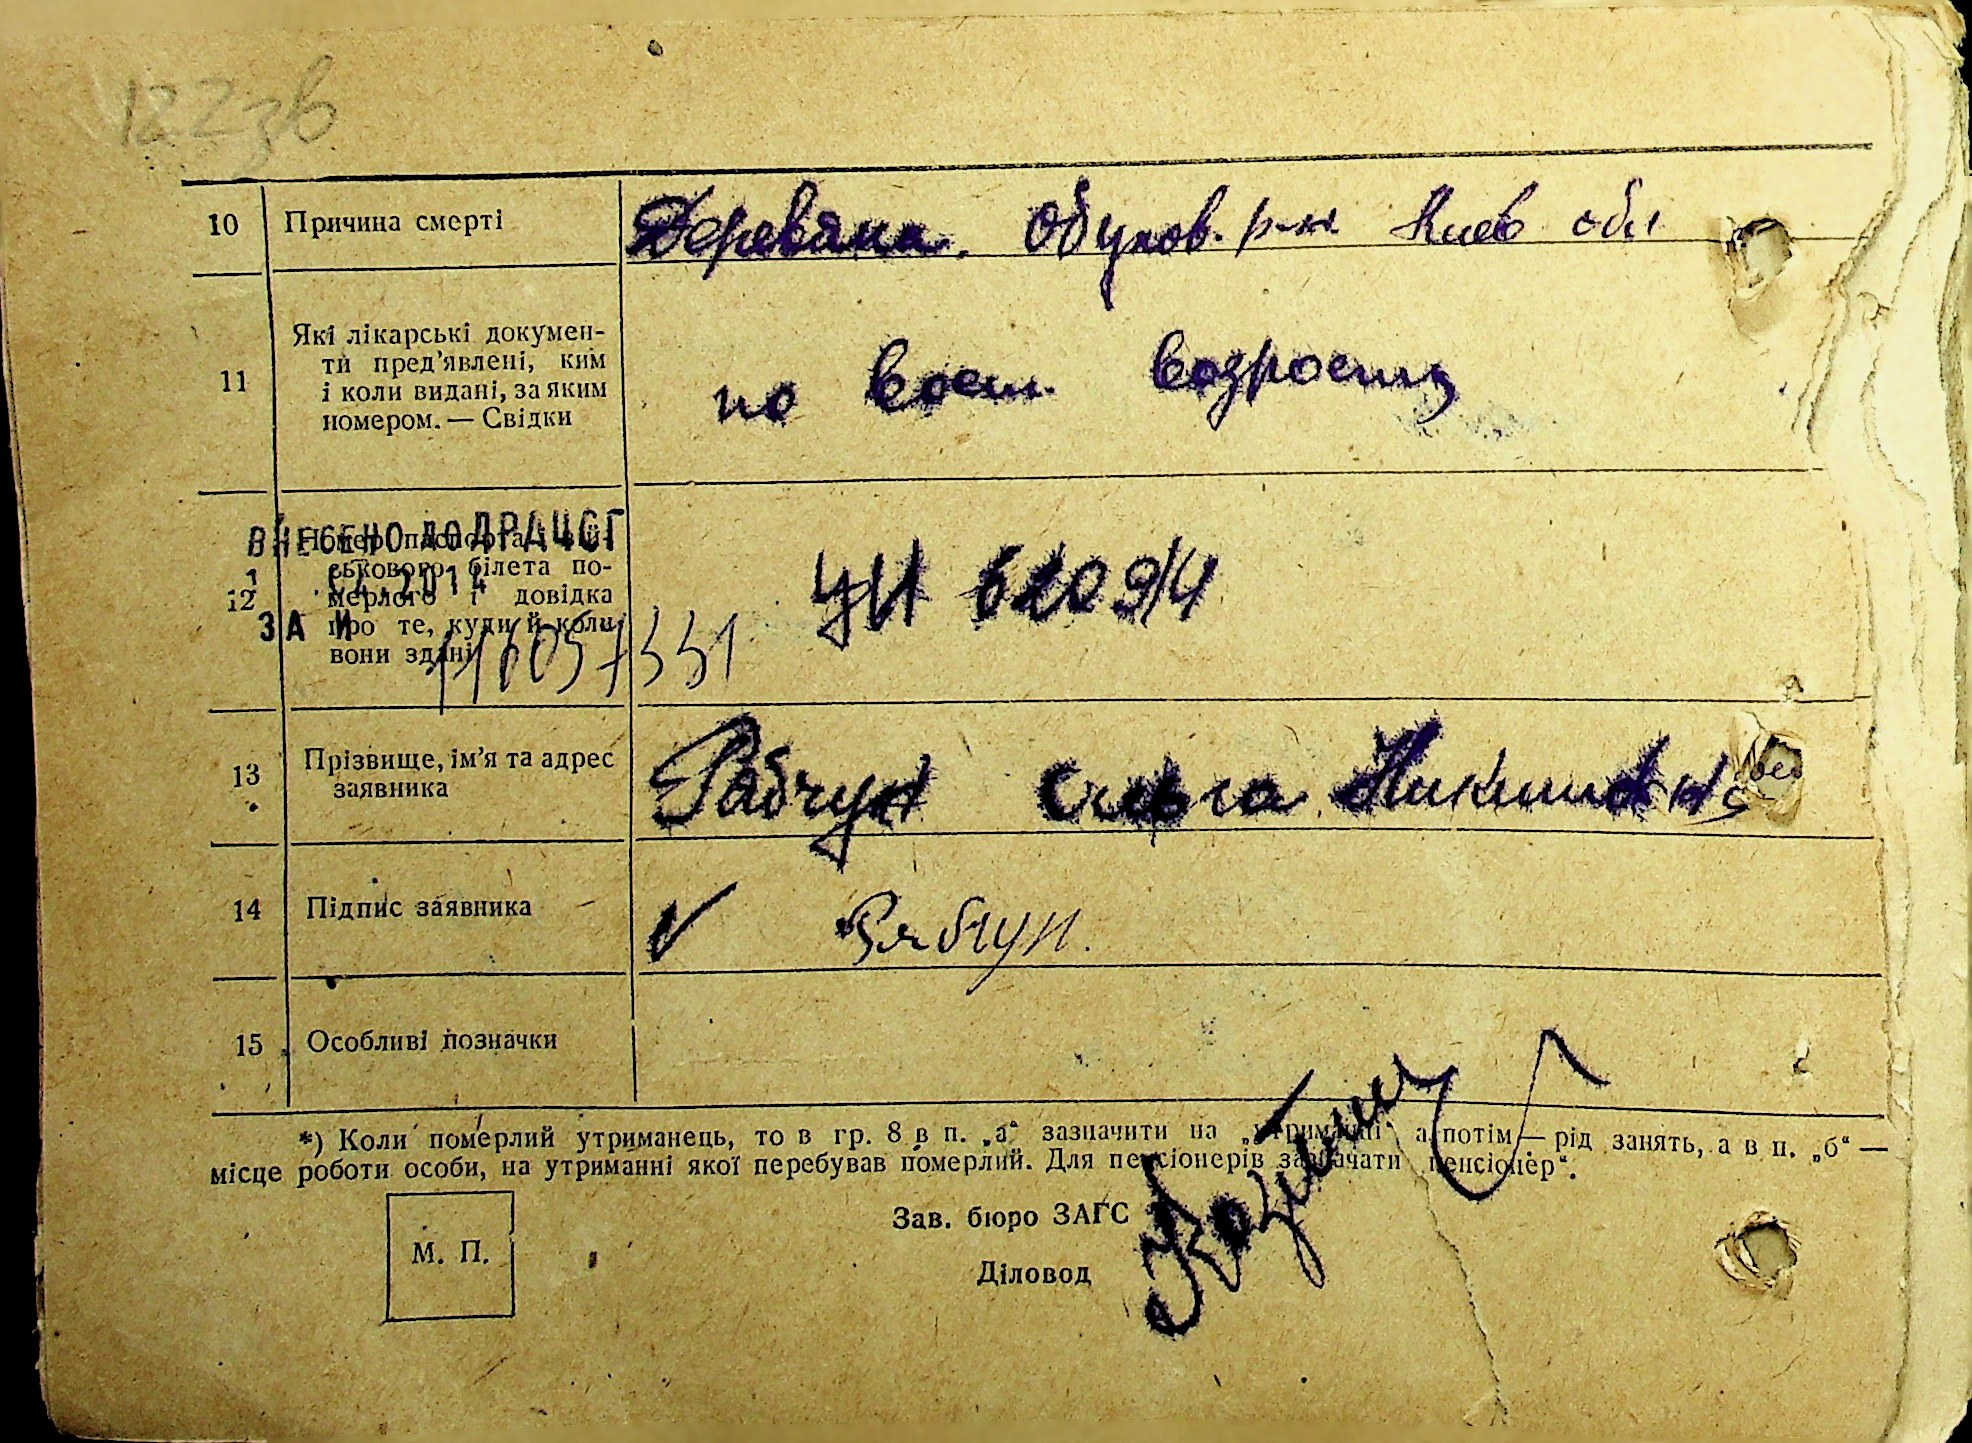 122зв
10 Причина смерті Деревяна. Обухов. р-н. Киев обл
11 Які лікарські докумен-
ти пред’явлені, ким
і коли видані, за яким
номером. — Свідки
по восст. возросту
ВНЕСЕНО ДО ДРАЦСГ
12 Номер паспорта і вій-
ськового білета по-
мерлого і довідка
про те, куди й коли
вони здані
ЗА №
УИ 620914
13 Прізвище, ім’я та адрес
заявника
Рабчун Ольга Никитовна
14 Підпис заявника ✓ Рябчун.
15 Особливі позначки
*) Коли померлий утриманець, то в гр. 8 в п. „а“ зазначити на „утриманні“ а потім — рід занять, а в п. „б“ —
місце роботи особи, на утриманні якої перебував померлий. Для пенсіонерів зазначати „пенсіонер“.
Зав. бюро ЗАГС
М. П.
Діловод